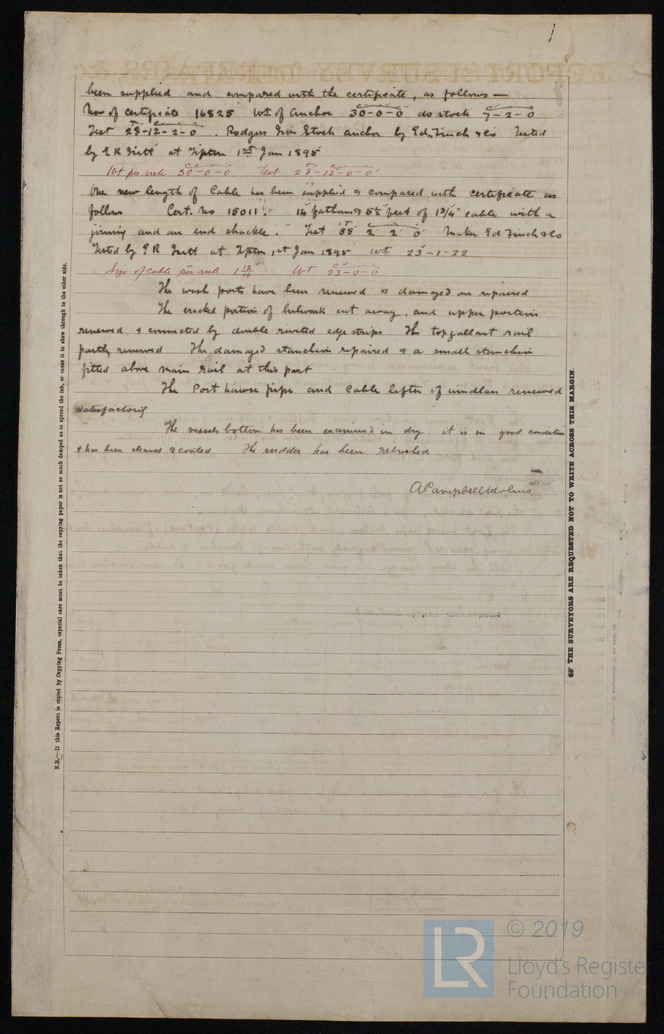 1
been supplied and compared with the certificate, as follows —
No of certificate 16825 Wt of Anchor 30-0-0 do stock 7-2-0
Test 28-12-2-0. Rodgers Iron Stock anchor by Ed. Finch & Co Tested
by at Tipton 1st Jan 1895
Wt per rule 30-0-0 Test 28-12-0-0
One new length of Cable has been supplied & compared with certificate as
follows Cert. No 15011. 14 fathoms 5½ feet of 1¾" cable with a
joining and an end shackle. Test 55 2 2 0 Maker Ed Finch & Co
Tested by at Tipton 1st Jan 1895 Wt 23-1-22
Size of Cable per rule 1 Wt 23-0-0
The wash ports have been renewed & damaged on repaired
The cracked portion of bulwark cut away, and upper portion
renewed & connected by double riveted edge strips The topgallant rail
partly renewed. The damaged stanchion repaired & a small stanchion
fitted above main rail at this part
The Port hawse pipe and Cable lifter of windlass renewed
satisfactorily
The vessels bottom has been examined in dry it is in good condition
& has been cleaned & coated. The rudder has been rebushed
A Campbell Holms
N.B.—If this Report is copied by Copying Press, especial care must be taken that the copying paper is not so much damped as to spread the ink, or cause it to show through to the other side.
THE SURVEYORS ARE REQUESTED NOT TO WRITE ACROSS THIS MARGIN.
LR
© 2019
Lloyd's Register
Foundation